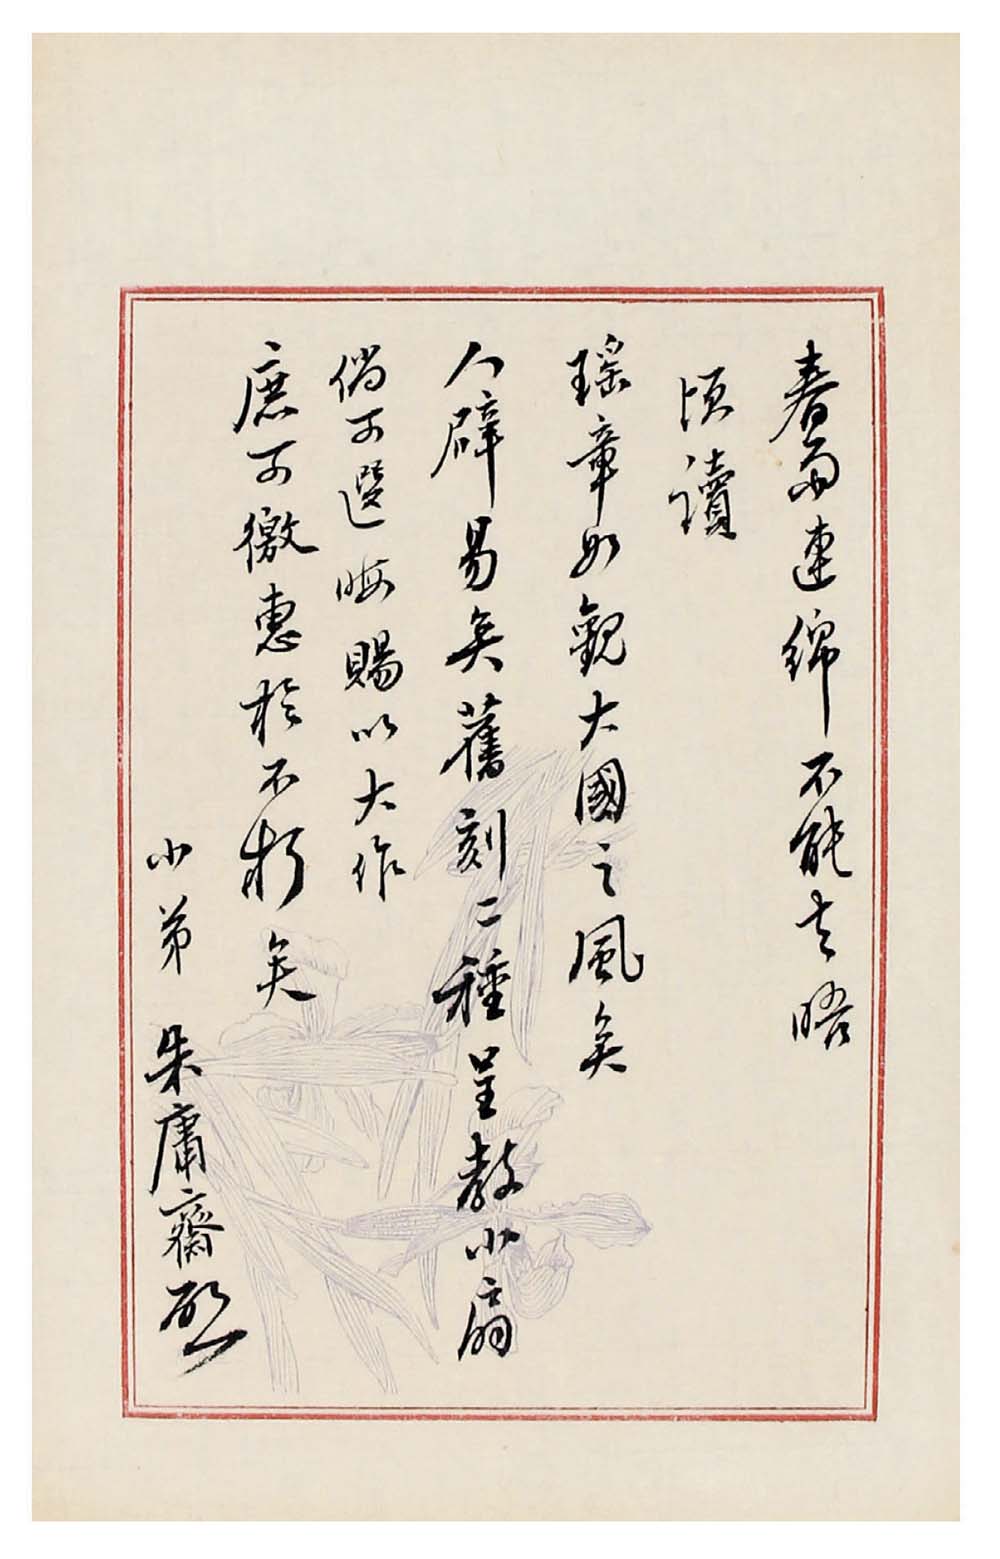 春雨連綿不能去晤
頃讀
瑶章如觀大國之風矣
人辟易矣舊刻二種呈教小扇
倘可選晦賜以大作
庶可徼惠於不朽矣
小弟 朱庸齋啟